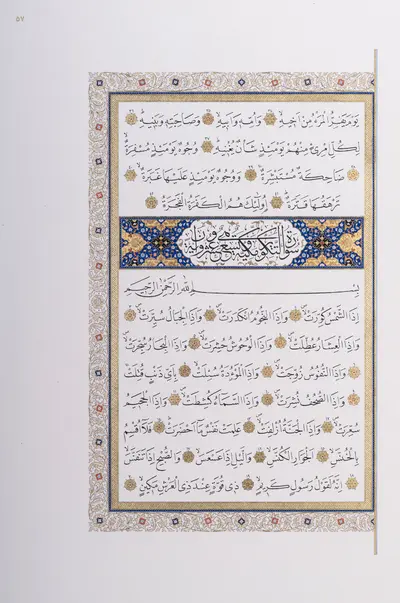 ٥٧
يَوْمَ يَفِرُّ الْمَرْءُ مِنْ أَخِيهِ وَأُمِّهِ وَأَبِيهِ وَصَاحِبَتِهِ وَبَنِيهِ
لِكُلِّ امْرِئٍ مِنْهُمْ يَوْمَئِذٍ شَأْنٌ يُغْنِيهِ وُجُوهٌ يَوْمَئِذٍ مُسْفِرَةٌ
ضَاحِكَةٌ مُسْتَبْشِرَةٌ وَوُجُوهٌ يَوْمَئِذٍ عَلَيْهَا غَبَرَةٌ
تَرْهَقُهَا قَتَرَةٌ أُولَئِكَ هُمُ الْكَفَرَةُ الْفَجَرَةُ
سورة التكوير مكية وهي تسع وعشرون آية
بِسْمِ اللهِ الرَّحْمٰنِ الرَّحِيمِ
إِذَا الشَّمْسُ كُوِّرَتْ وَإِذَا النُّجُومُ انْكَدَرَتْ وَإِذَا الْجِبَالُ سُيِّرَتْ
وَإِذَا الْعِشَارُ عُطِّلَتْ وَإِذَا الْوُحُوشُ حُشِرَتْ وَإِذَا الْبِحَارُ سُجِّرَتْ
وَإِذَا النُّفُوسُ زُوِّجَتْ وَإِذَا الْمَوْءُدَةُ سُئِلَتْ بِأَيِّ ذَنْبٍ قُتِلَتْ
وَإِذَا الصُّحُفُ نُشِرَتْ وَإِذَا السَّمَاءُ كُشِطَتْ وَإِذَا الْجَحِيمُ
سُعِّرَتْ وَإِذَا الْجَنَّةُ أُزْلِفَتْ عَلِمَتْ نَفْسٌ مَا أَحْضَرَتْ فَلَا أُقْسِمُ
بِالْخُنَّسِ الْجَوَارِ الْكُنَّسِ وَاللَّيْلِ إِذَا عَسْعَسَ وَالصُّبْحِ إِذَا تَنَفَّسَ
إِنَّهُ لَقَوْلُ رَسُولٍ كَرِيمٍ ذِي قُوَّةٍ عِنْدَ ذِي الْعَرْشِ مَكِينٍ